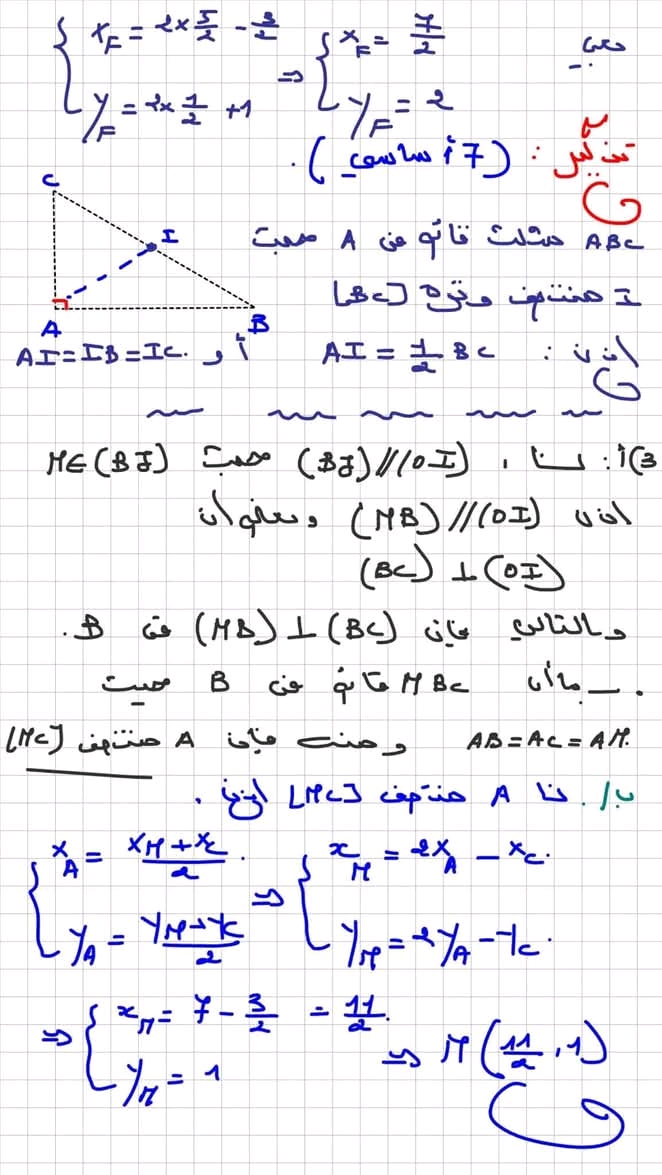 يعني
{ x_F = 2×5/2 - 3/2 ⇒ { x_F = 7/2
y_F = 2×1/2 + 1    y_F = 2
تذكير : (7 أساسي).
C
I
ABC مثلث قائم في A حيث
I منتصف وتره [BC]
A
B
اذن : AI = 1/2 BC أو AI = IB = IC.
3)أ: لنا ، (BJ)//(OI) حيث M∈(BJ)
اذن (MB)//(OI) وبما أن
(BC) ⊥ (OI)
وبالتالي فإن (MB)⊥(BC) في B.
. بما أن MBC قائم في B حيث
AB=AC=AM. ومنه فإن A منتصف [MC]
ب/. لنا A منتصف [MC] إذن .
{ x_A = (x_M + x_C)/2 . ⇒ { x_M = 2x_A - x_C.
y_A = (y_M + y_C)/2    y_M = 2y_A - y_C.
⇒ { x_M = 7 - 3/2 = 11/2.
y_M = 1    ⇒ M(11/2 , 1)